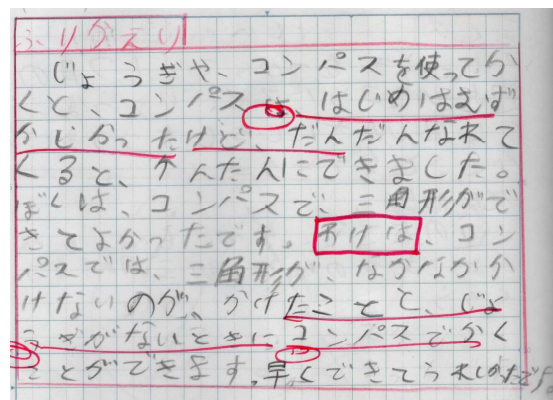 ふりかえり
じょうぎや、コンパスを使ってか
くと、コンパスは、はじめはむず
かしかったけど、だんだんなれて
くると、かんたんにできました。
ぼくは、コンパスで、三角形がで
きてよかったです。わけは、コン
パスでは、三角形が、なかなかか
けないのが、かけたことと、じょ
うぎがないときにコンパスでかく
ことができます。早くできてうれしかったです。